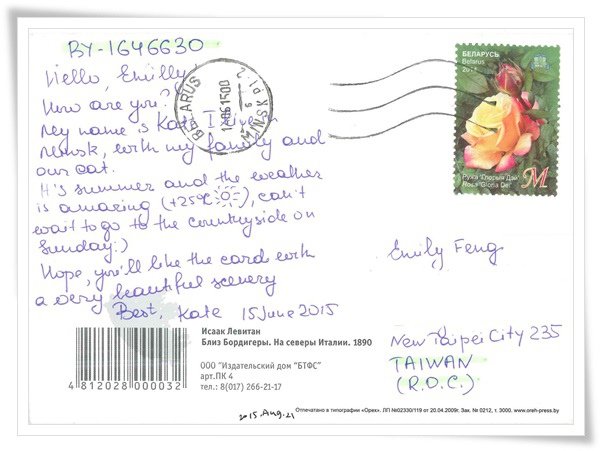 BY-1646630
Hello, Emilly!
How are you?
My name is Kate I live in
Minsk, with my family and
our cat.
It's summer and the weather
is amazing (+25°C), can't
wait to go to the countryside on
Sunday:)
Hope, you'll like the card with
a very beautiful scenery
Best, Kate 15 June 2015
BELARUS
MINSK
БЕЛАРУСЬ
Belarus
Ружа "Глорыя Дэй"
Rosa "Gloria Dei"
M
Emily Feng
New Taipei City 235
TAIWAN
(R.O.C.)
Исаак Левитан
Близ Бордигеры. На севере Италии. 1890
ООО "Издательский дом "БТФС"
арт.ПК 4
тел.: 8(017) 266-21-17
4812028000032
2015.Aug.21
Отпечатано в типографии «Орех». ЛП №02330/119 от 20.04.2009г. Зак. № 0212, т. 3000. www.oreh-press.by